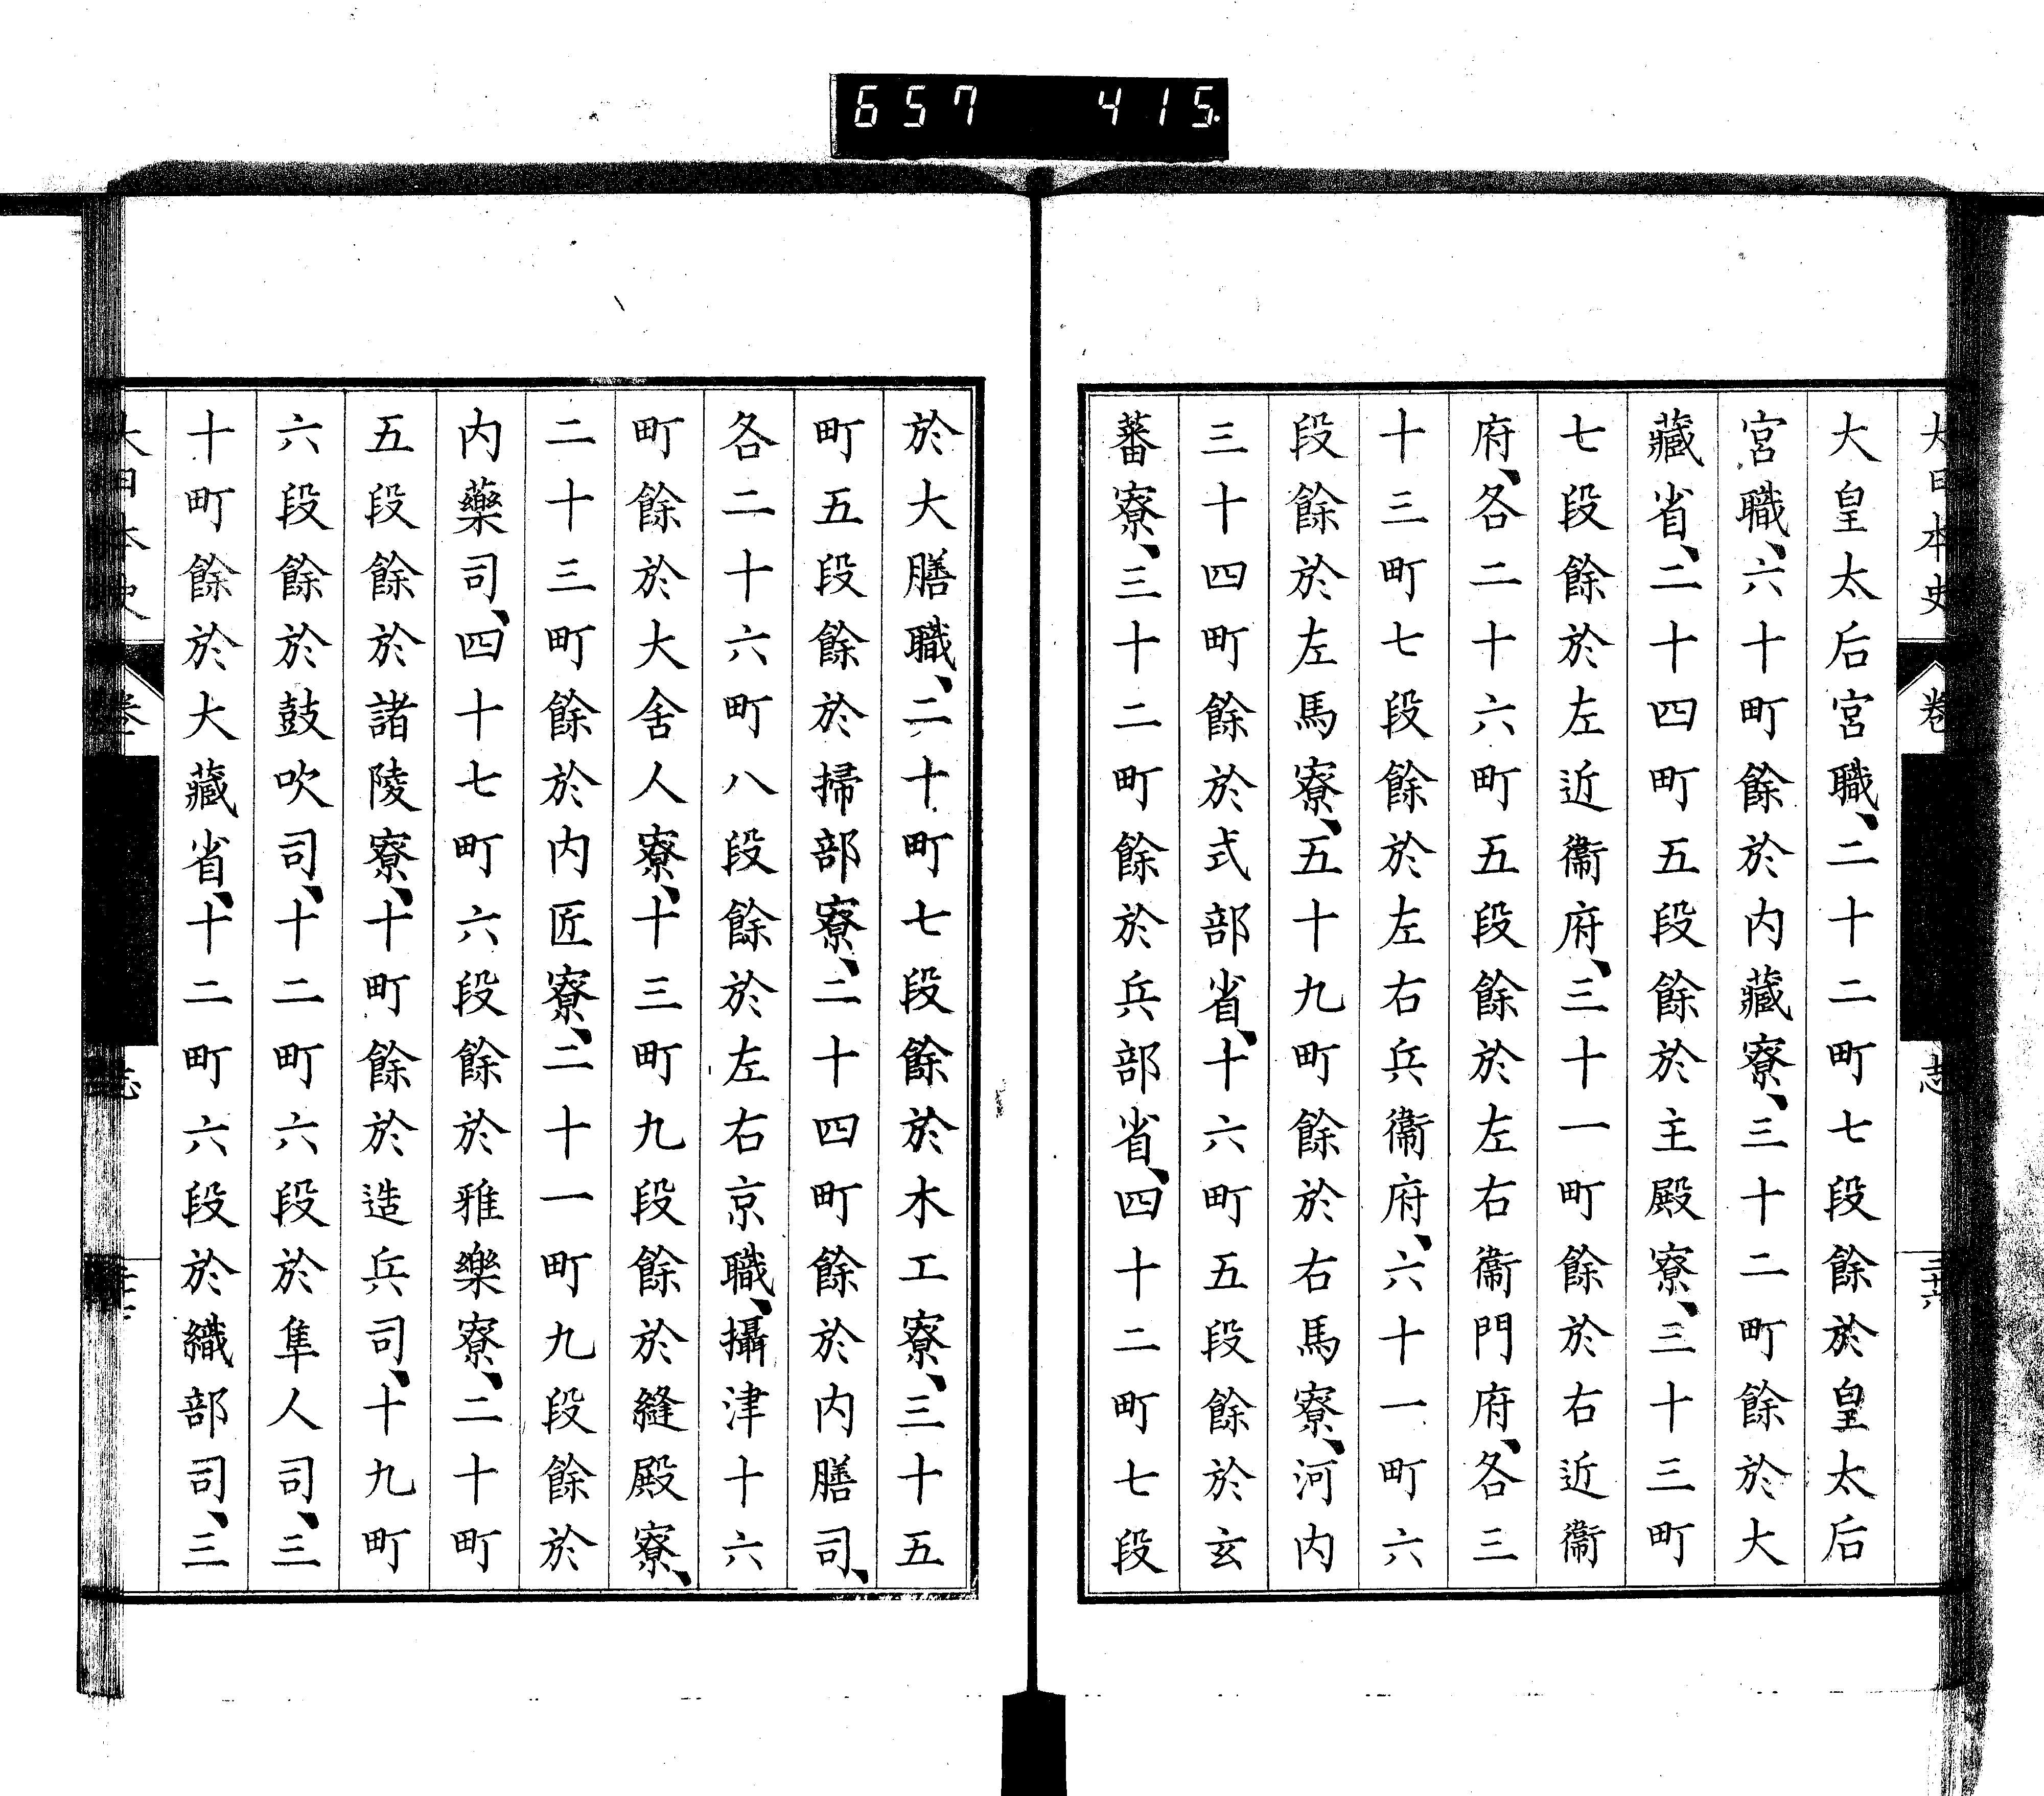 657 415
大日本史 卷 志 三十六
大皇太后宮職、二十二町七段餘於皇太后
宮職、六十町餘於内藏寮、三十二町餘於大
藏省、二十四町五段餘於主殿寮、三十三町
七段餘於左近衞府、三十一町餘於右近衞
府、各二十六町五段餘於左右衞門府、各三
十三町七段餘於左右兵衞府、六十一町六
段餘於左馬寮、五十九町餘於右馬寮、河内
三十四町餘於式部省、十六町五段餘於玄
蕃寮、三十二町餘於兵部省、四十二町七段
於大膳職、二十町七段餘於木工寮、三十五
町五段餘於掃部寮、二十四町餘於内膳司、
各二十六町八段餘於左右京職、攝津十六
町餘於大舍人寮、十三町九段餘於縫殿寮、
二十三町餘於内匠寮、二十一町九段餘於
内藥司、四十七町六段餘於雅樂寮、二十町
五段餘於諸陵寮、十町餘於造兵司、十九町
六段餘於鼓吹司、十二町六段於隼人司、三
十町餘於大藏省、十二町六段於織部司、三
大日本史 卷 志